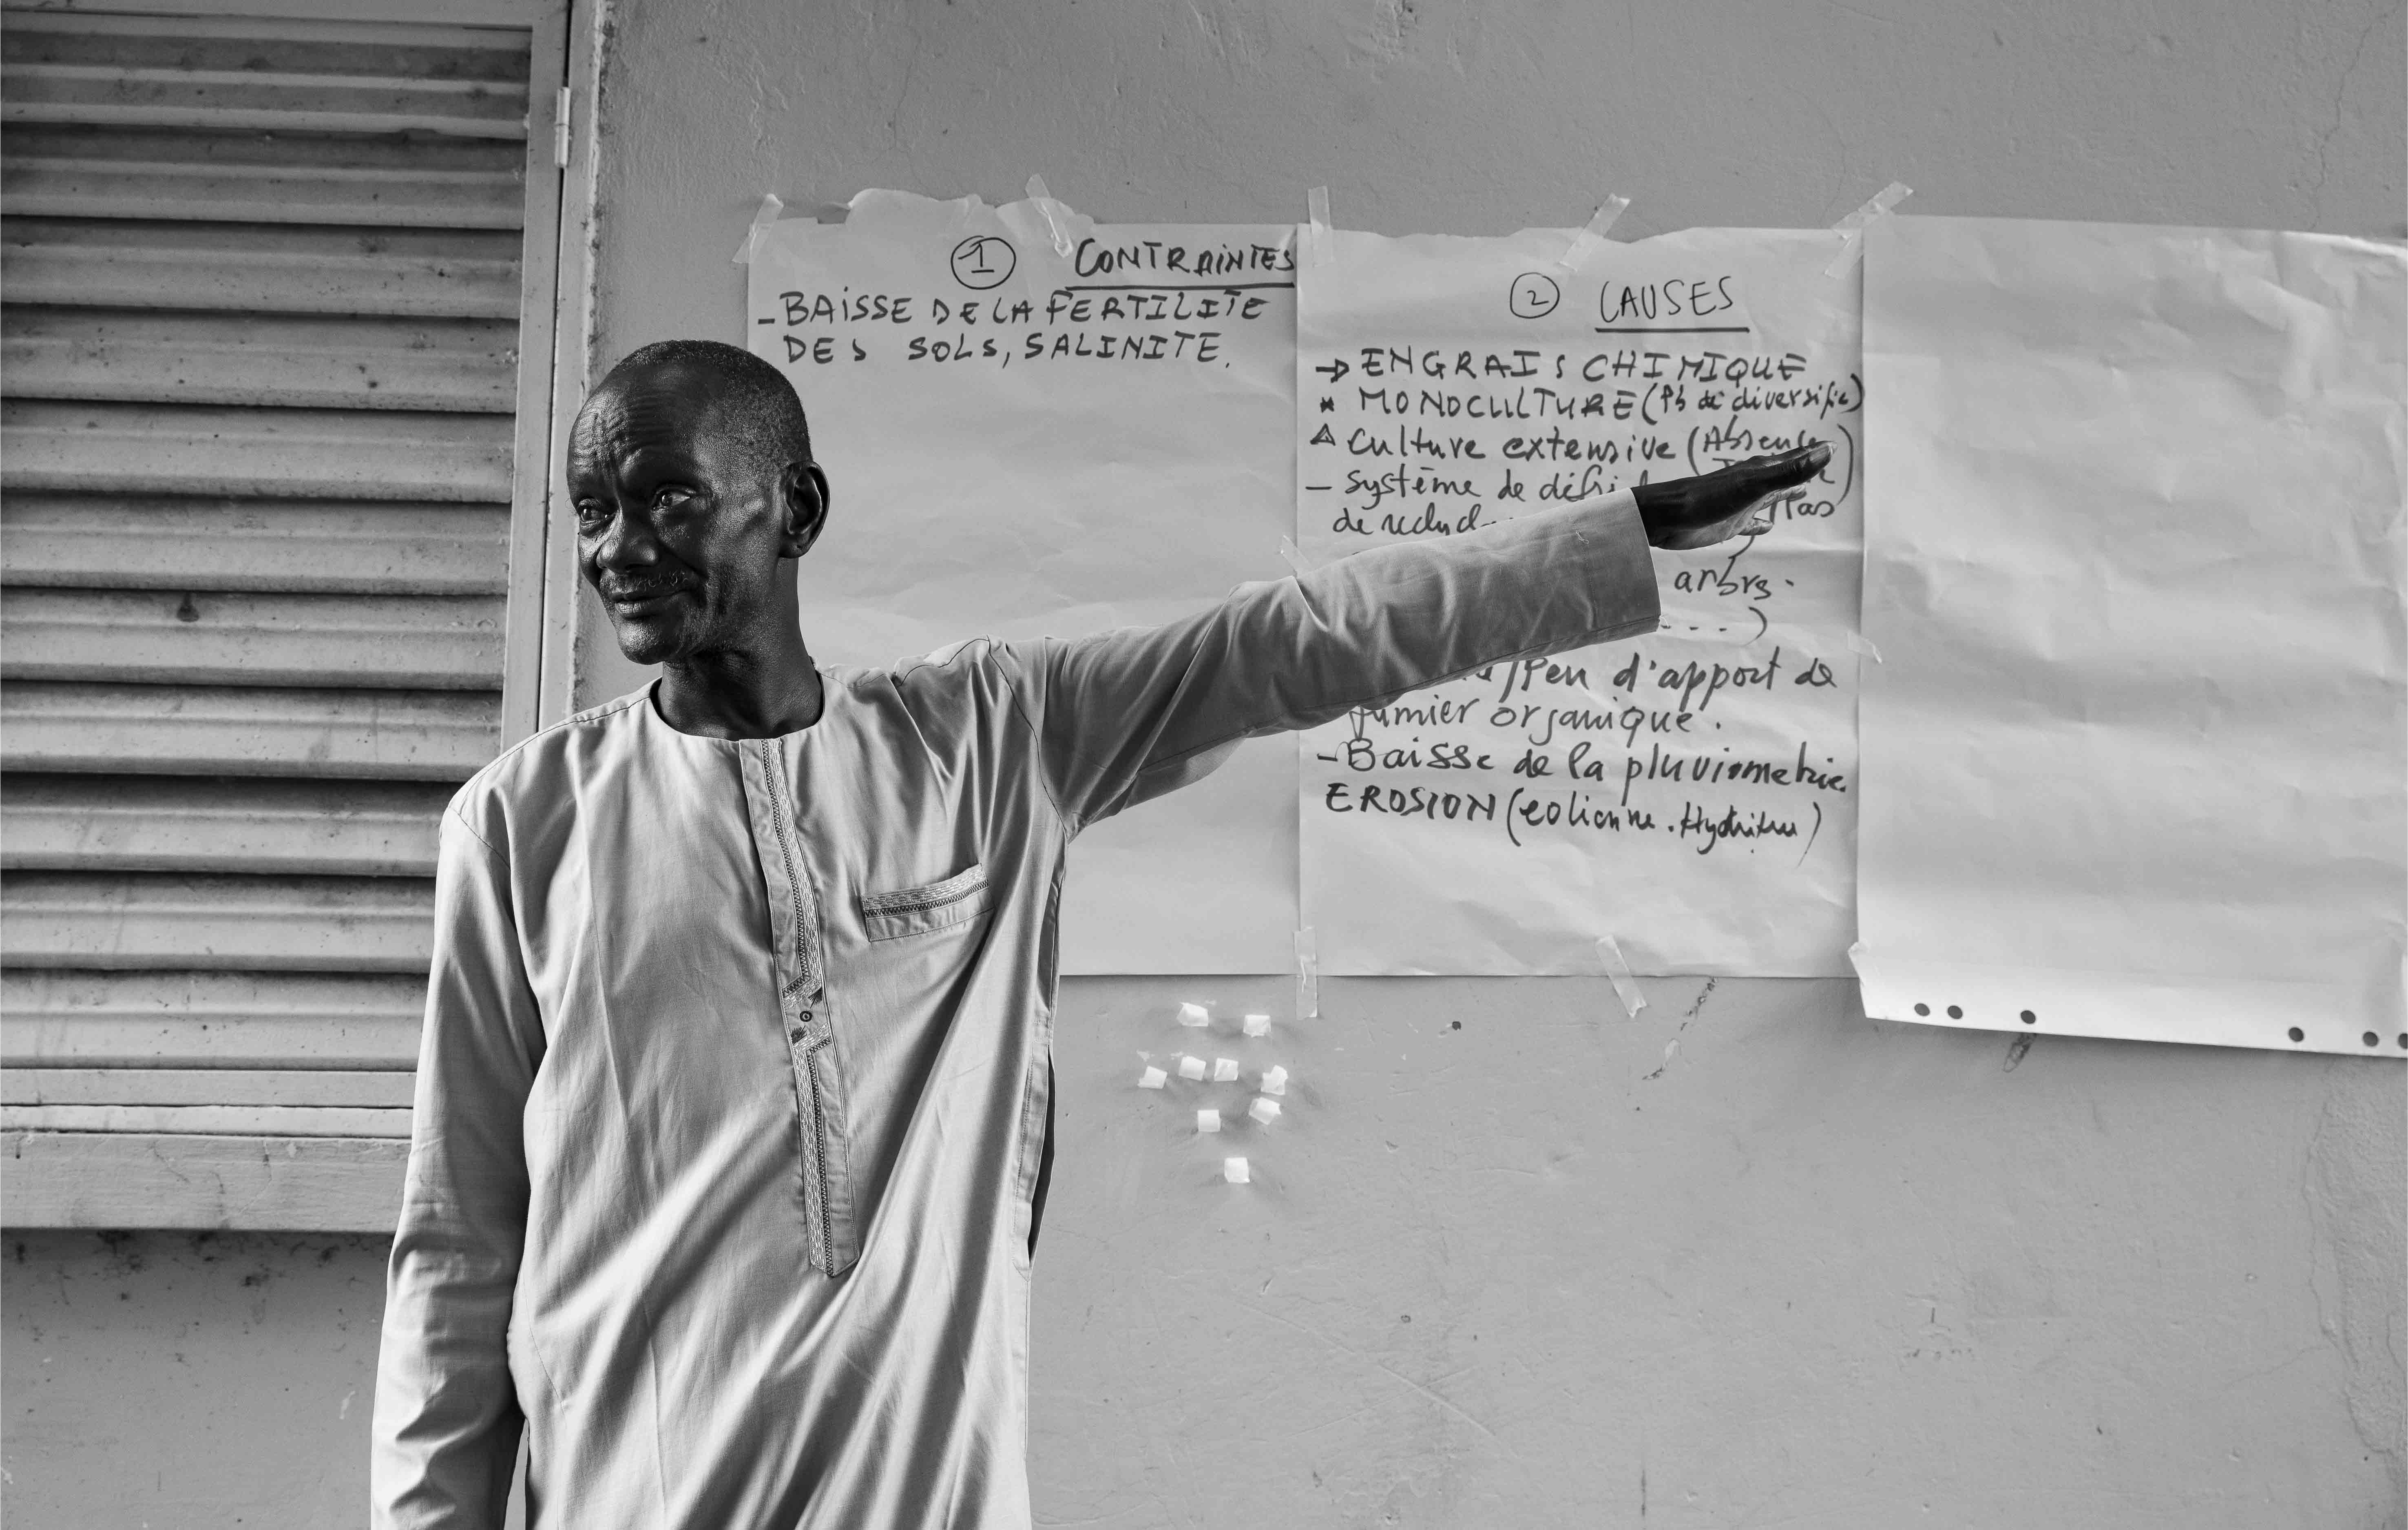 1 CONTRAINTES
- BAISSE DE LA FERTILITE
DES SOLS, SALINITE.
2 CAUSES
→ ENGRAIS CHIMIQUE
* MONOCULTURE (Pb de diversific)
Δ Culture extensive (Absence
- Système de
de
Pas
arbrs.
...)
/Peu d'apport de
fumier organique.
- Baisse de la pluviometrie.
EROSION (eolienne.